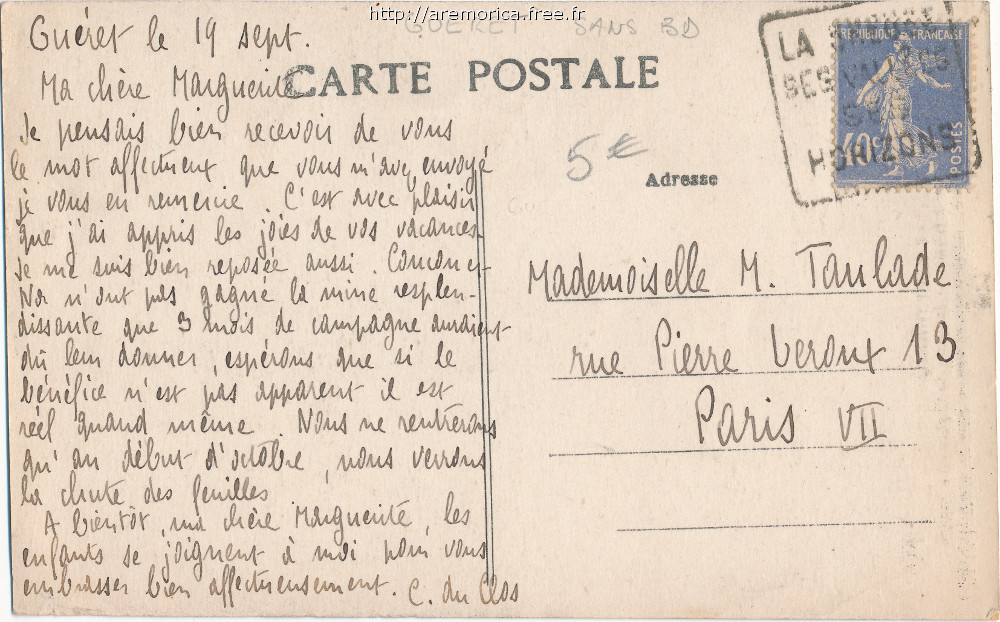 http://aremorica.free.fr
GUERET SANS BD
Guéret le 19 sept.
Ma chère Marguerite
Je pensais bien recevoir de vous
le mot affectueux que vous m'avez envoyé
je vous en remercie. C'est avec plaisir
que j'ai appris les joies de vos vacances.
Je me suis bien reposée aussi. et
n'ont pas gagné la mine resplen-
dissante que 3 mois de campagne auraient
dû leur donner, espérons que si le
bénéfice n'est pas apparent il est
réel quand même. Nous ne rentrerons
qu'au début d'octobre, nous verrons
la chute des feuilles
A bientôt, ma chère Marguerite, les
enfants se joignent à moi pour vous
embrasser bien affectueusement. C. du Clos
CARTE POSTALE
5€
Adresse
LA
SES
HORIZONS
REPUBLIQUE FRANÇAISE
40c
POSTES
Mademoiselle M. Taulade
rue Pierre Leroux 13
Paris VII